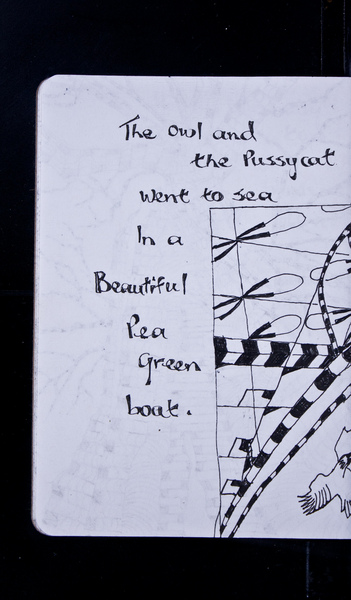 The owl and
the Pussycat
went to sea
In a
Beautiful
Pea
green
boat.